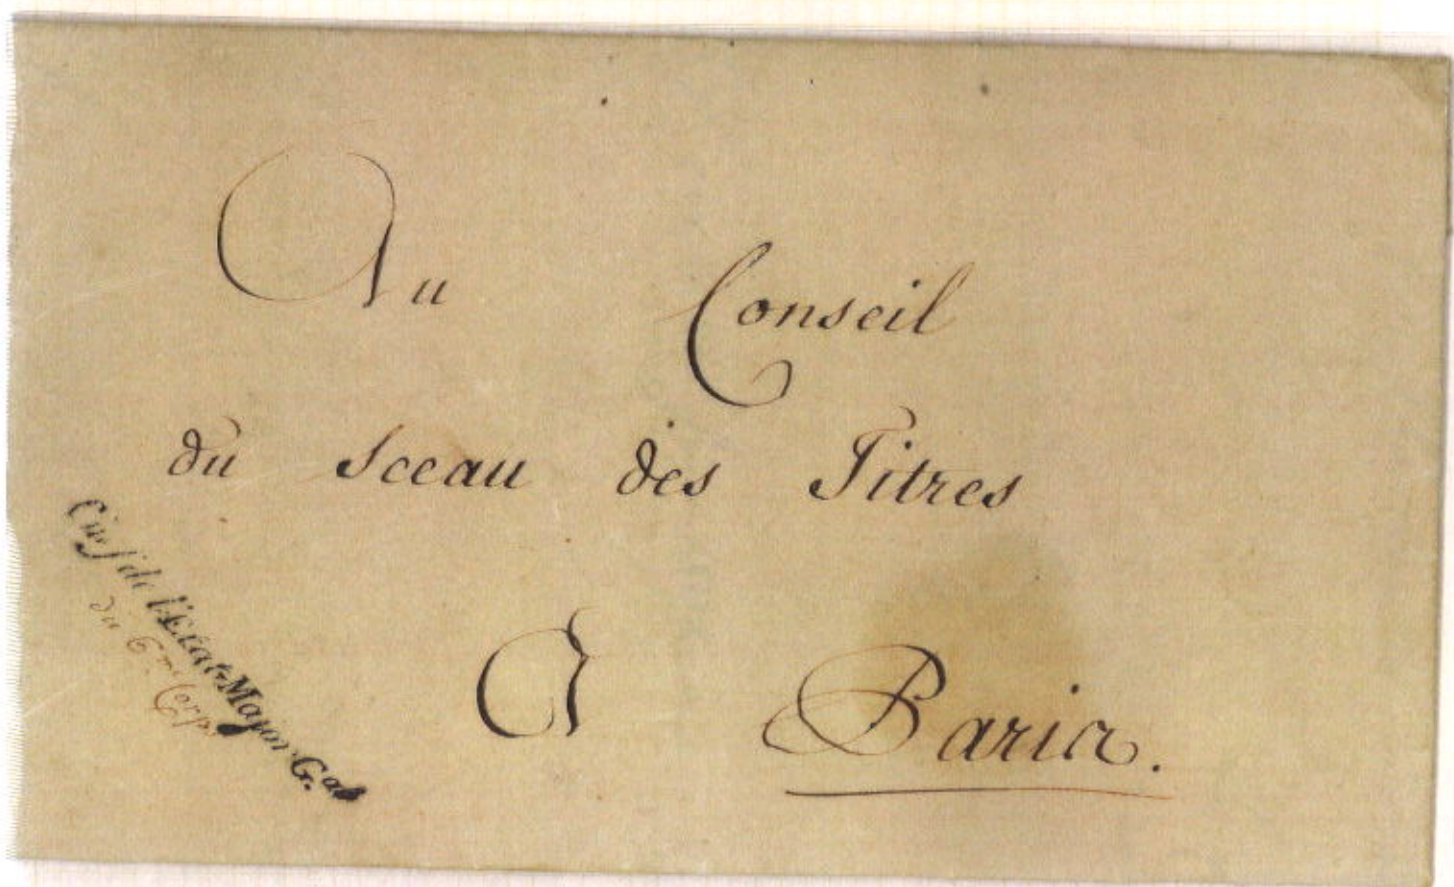 Au Conseil
du Sceau des Titres
A Paris.
Chef de l'Etat-Major G.al
du 6.me Corps